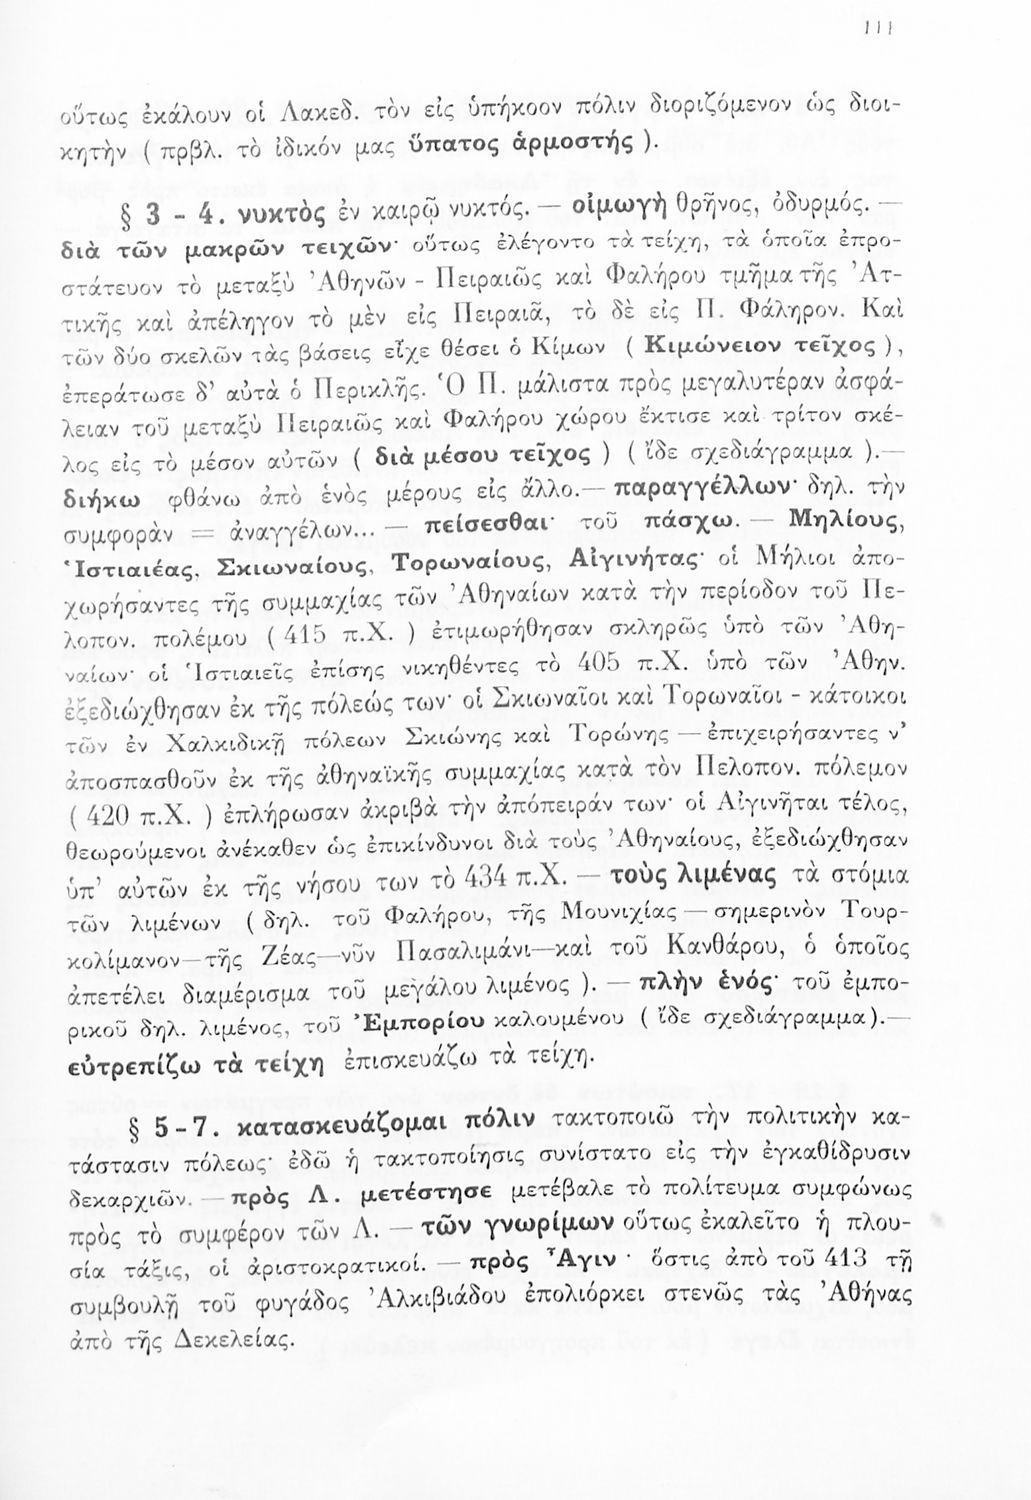 111
οὕτως ἐκάλουν οἱ Λακεδ. τὸν εἰς ὑπήκοον πόλιν διοριζόμενον ὡς διοι-
κητὴν ( πρβλ. τὸ ἰδικόν μας ὕπατος ἁρμοστής ).
§ 3 - 4. νυκτὸς ἐν καιρῷ νυκτός. — οἰμωγὴ θρῆνος, ὀδυρμός. —
διὰ τῶν μακρῶν τειχῶν· οὕτως ἐλέγοντο τὰ τείχη, τὰ ὁποῖα ἐπρο-
στάτευον τὸ μεταξὺ Ἀθηνῶν - Πειραιῶς καὶ Φαλήρου τμῆμα τῆς Ἀτ-
τικῆς καὶ ἀπέληγον τὸ μὲν εἰς Πειραιᾶ, τὸ δὲ εἰς Π. Φάληρον. Καὶ
τῶν δύο σκελῶν τὰς βάσεις εἶχε θέσει ὁ Κίμων ( Κιμώνειον τεῖχος ),
ἐπεράτωσε δ' αὐτὰ ὁ Περικλῆς. Ὁ Π. μάλιστα πρὸς μεγαλυτέραν ἀσφά-
λειαν τοῦ μεταξὺ Πειραιῶς καὶ Φαλήρου χώρου ἔκτισε καὶ τρίτον σκέ-
λος εἰς τὸ μέσον αὐτῶν ( διὰ μέσου τεῖχος ) ( ἴδε σχεδιάγραμμα ).—
διήκω φθάνω ἀπὸ ἑνὸς μέρους εἰς ἄλλο.— παραγγέλλων· δηλ. τὴν
συμφορὰν = ἀναγγέλων... — πείσεσθαι· τοῦ πάσχω. — Μηλίους,
Ἱστιαιέας, Σκιωναίους, Τορωναίους, Αἰγινήτας· οἱ Μήλιοι ἀπο-
χωρήσαντες τῆς συμμαχίας τῶν Ἀθηναίων κατὰ τὴν περίοδον τοῦ Πε-
λοπον. πολέμου ( 415 π.Χ. ) ἐτιμωρήθησαν σκληρῶς ὑπὸ τῶν Ἀθη-
ναίων· οἱ Ἱστιαιεῖς ἐπίσης νικηθέντες τὸ 405 π.Χ. ὑπὸ τῶν Ἀθην.
ἐξεδιώχθησαν ἐκ τῆς πόλεώς των· οἱ Σκιωναῖοι καὶ Τορωναῖοι - κάτοικοι
τῶν ἐν Χαλκιδικῇ πόλεων Σκιώνης καὶ Τορώνης — ἐπιχειρήσαντες ν'
ἀποσπασθοῦν ἐκ τῆς ἀθηναϊκῆς συμμαχίας κατὰ τὸν Πελοπον. πόλεμον
( 420 π.Χ. ) ἐπλήρωσαν ἀκριβὰ τὴν ἀπόπειράν των· οἱ Αἰγινῆται τέλος,
θεωρούμενοι ἀνέκαθεν ὡς ἐπικίνδυνοι διὰ τοὺς Ἀθηναίους, ἐξεδιώχθησαν
ὑπ' αὐτῶν ἐκ τῆς νήσου των τὸ 434 π.Χ. — τοὺς λιμένας τὰ στόμια
τῶν λιμένων ( δηλ. τοῦ Φαλήρου, τῆς Μουνιχίας — σημερινὸν Τουρ-
κολίμανον—τῆς Ζέας—νῦν Πασαλιμάνι—καὶ τοῦ Κανθάρου, ὁ ὁποῖος
ἀπετέλει διαμέρισμα τοῦ μεγάλου λιμένος ). — πλὴν ἑνός· τοῦ ἐμπο-
ρικοῦ δηλ. λιμένος, τοῦ Ἐμπορίου καλουμένου ( ἴδε σχεδιάγραμμα).—
εὐτρεπίζω τὰ τείχη ἐπισκευάζω τὰ τείχη.
§ 5-7. κατασκευάζομαι πόλιν τακτοποιῶ τὴν πολιτικὴν κα-
τάστασιν πόλεως· ἐδῶ ἡ τακτοποίησις συνίστατο εἰς τὴν ἐγκαθίδρυσιν
δεκαρχιῶν. — πρὸς Λ. μετέστησε μετέβαλε τὸ πολίτευμα συμφώνως
πρὸς τὸ συμφέρον τῶν Λ. — τῶν γνωρίμων οὕτως ἐκαλεῖτο ἡ πλου-
σία τάξις, οἱ ἀριστοκρατικοί. — πρὸς Ἆγιν · ὅστις ἀπὸ τοῦ 413 τῇ
συμβουλῇ τοῦ φυγάδος Ἀλκιβιάδου ἐπολιόρκει στενῶς τὰς Ἀθήνας
ἀπὸ τῆς Δεκελείας.